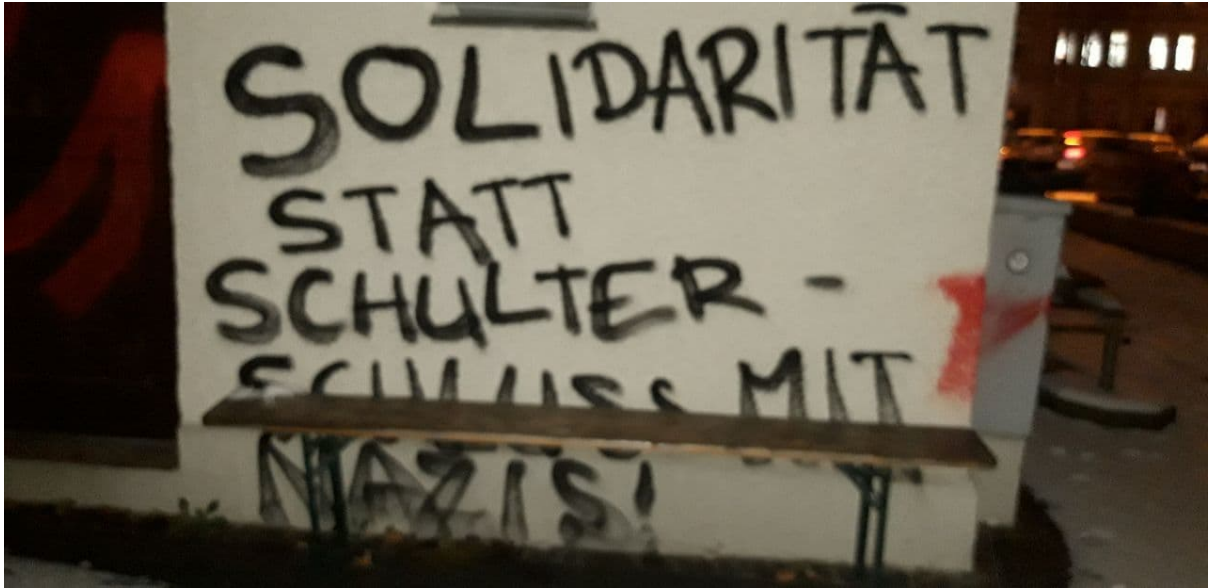 SOLIDARITÄT
STATT
SCHULTER-
SCHLUSS MIT
NAZIS!